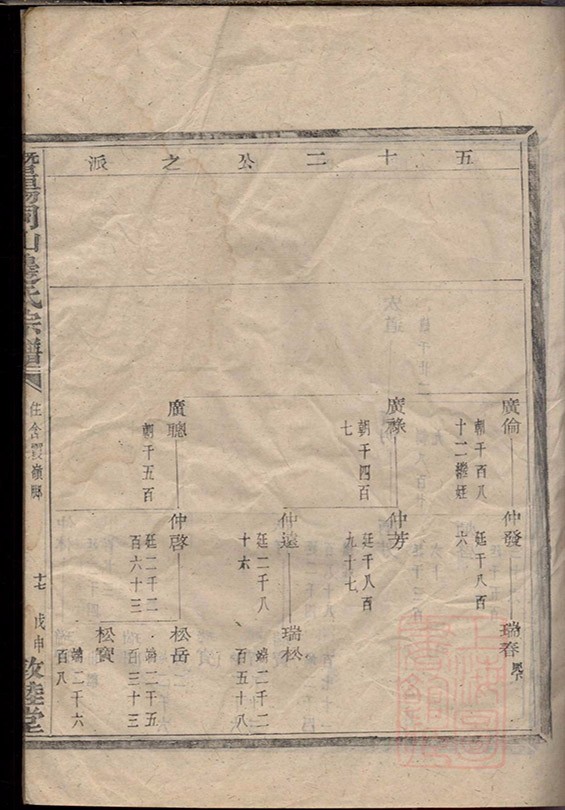 五十二公之派
廣倫
朝千百八
十二繼廷
仲發
廷千八百
六
瑞春
廣祿
朝千四百
七
仲芳
廷千八百
九十七
仲遠
廷二千八
十六
瑞松
端二千二
百五十八
廣聰
朝千五百
仲啓
廷二千二
百六十三
松岳
端二千五
百三十三
松賓
端二千六
百八
暨陽同山邊氏宗譜
住含
嶺腳
十七
戊申
敦睦堂